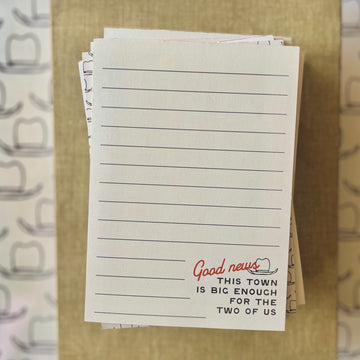 Good news
THIS TOWN
IS BIG ENOUGH
FOR THE
TWO OF US